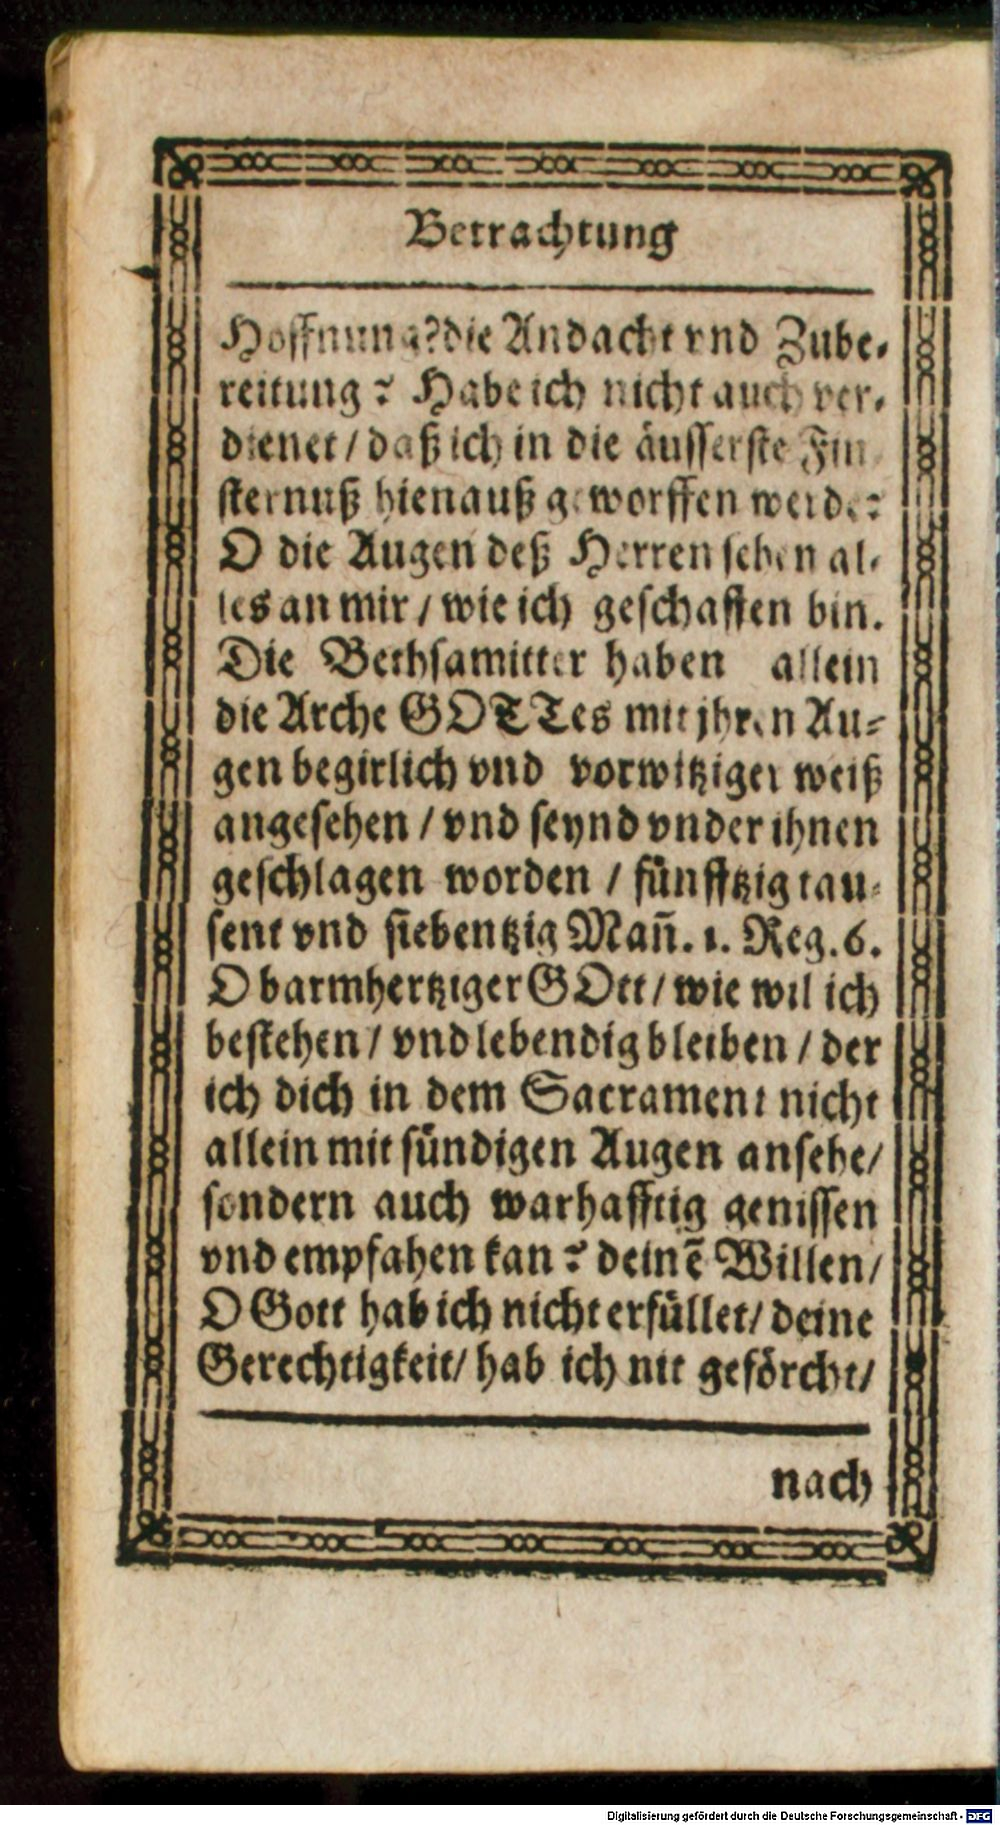 Betrachtung
Hoffnung? die Andacht vnd Zube-
reitung? Habe ich nicht auch ver-
dienet / daß ich in die äusserste Fin
sternuß hienauß geworffen werde?
O die Augen deß Herren sehen al-
les an mir / wie ich geschaffen bin.
Die Bethsamitter haben allein
die Arche GOTTes mit jhren Au-
gen begirlich vnd vorwitziger weiß
angesehen / vnd seynd vnder ihnen
geschlagen worden / fünfftzig tau-
sent vnd siebentzig Mañ. 1. Reg. 6.
O barmhertziger GOtt / wie wil ich
bestehen / vnd lebendig bleiben / der
ich dich in dem Sacrament nicht
allein mit sündigen Augen ansehe /
sondern auch warhafftig genissen
vnd empfahen kan? deinē Willen /
O Gott hab ich nicht erfüllet / deine
Gerechtigkeit / hab ich nit geförcht /
nach
Digitalisierung gefördert durch die Deutsche Forschungsgemeinschaft - DFG